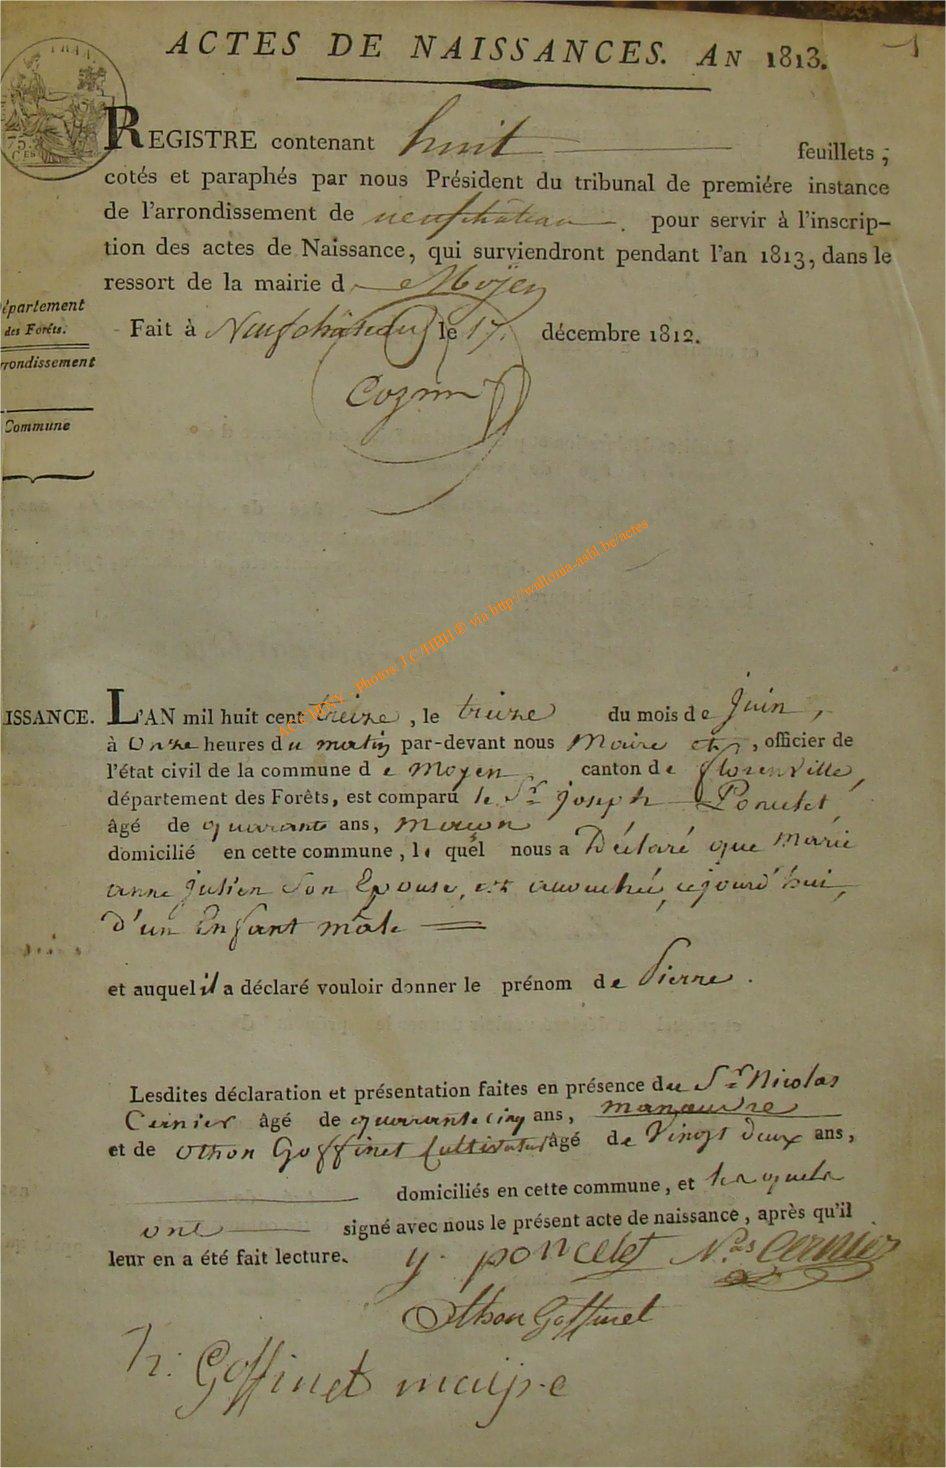 ACTES DE NAISSANCES. AN 1813.
1
REGISTRE contenant huit feuillets ;
cotés et paraphés par nous Président du tribunal de premiére instance
de l'arrondissement de neufchâteau . pour servir à l'inscrip-
tion des actes de Naissance, qui surviendront pendant l'an 1813, dans le
ressort de la mairie de Moÿen
Fait à Neufchâteau le 17. décembre 1812.
épartement
des Forêts.
rrondissement
Commune
ISSANCE. L'AN mil huit cent treize , le treize du mois de juin ,
à onze heures du matin par-devant nous Maire , officier de
l'état civil de la commune de Moyen . canton de florenville,
département des Forêts, est comparu le Sr. joseph Poncelet
âgé de quarante ans, Maçon
domicilié en cette commune, le quel nous a Déclaré que Marie
anne julien Son Epouse, est accouchée, ajourd'hui,
d'un Enfant mâle
et auquel il a déclaré vouloir donner le prénom de Pierre .
Lesdites déclaration et présentation faites en présence du Sr. Nicolas
Cernier âgé de quarante cinq ans, manœuvre
et de othon Goffinet Cultivateur âgé de Vingt deux ans,
domiciliés en cette commune, et lesquels
ont signé avec nous le présent acte de naissance, après qu'il
leur en a été fait lecture. poncelet Nas Cernier
Othon Goffinet
h. Goffinet maire
Photos J C/HBH ® via http://wallonia-asbl.be/actes